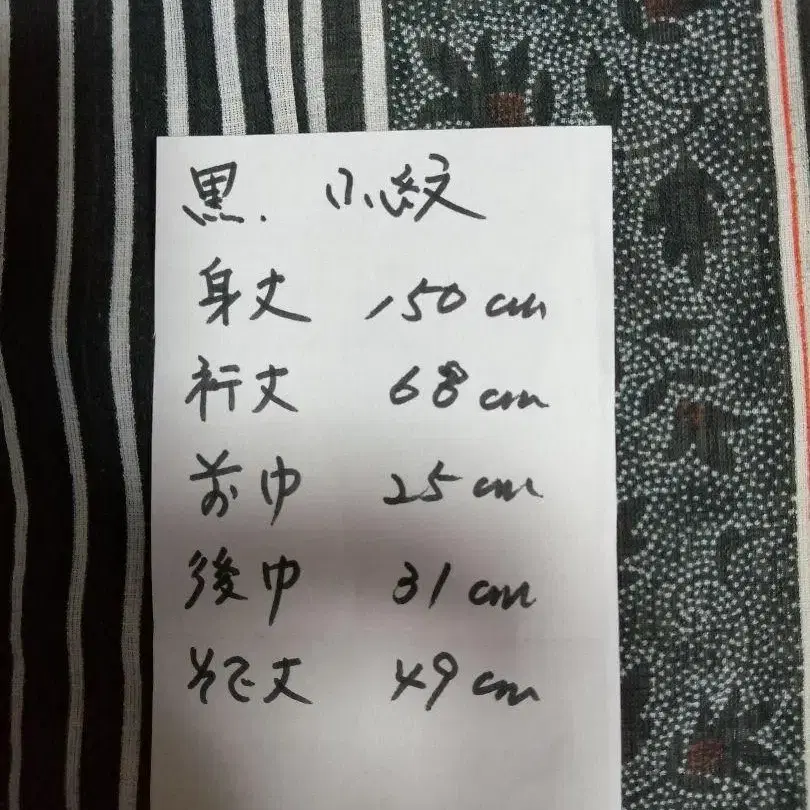 黒. 小紋
身丈 150cm
裄丈 68cm
前巾 25cm
後巾 31cm
そで丈 49cm